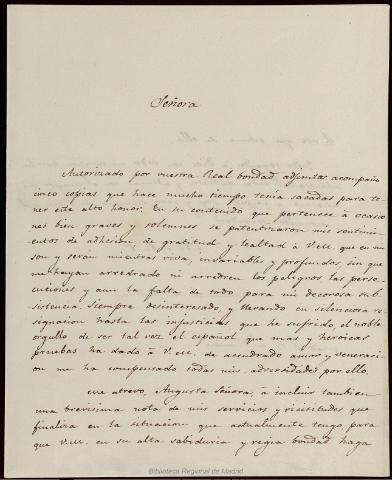 Señora
Autorizado por vuestra Real bondad adjuntas acompaño
cinco copias que hace mucho tiempo tenia sacadas para te-
ner este alto honor. En su contenido que pertenece á ocasio-
nes bien graves y solemnes se patentizaron mis sentimi-
entos de adhesion, de gratitud y lealtad á V.M. que en mi
son y serán mientras viva, invariables y profundos, sin que
me hayan arredrado ni arredren los peligros las perse-
cuciones y aun la falta de todo para mi decorosa sub-
sistencia. Siempre desinteresado, y llevando en silenciosa re-
signacion hasta las injusticias que he sufrido, el noble
orgullo de ser tal vez el español que mas y heroicas
pruebas ha dado á V.M. de acendrado amor y veneraci-
on me ha compensado todas mis adversidades por ello.
Me atrevo, Augusta Señora, á incluir tambien
una brevisima nota de mis servicios y vicisitudes que
finaliza en la situacion que actualmente tengo, para
que V.M. en su alta sabiduria y regia bondad haga
Biblioteca Regional de Madrid